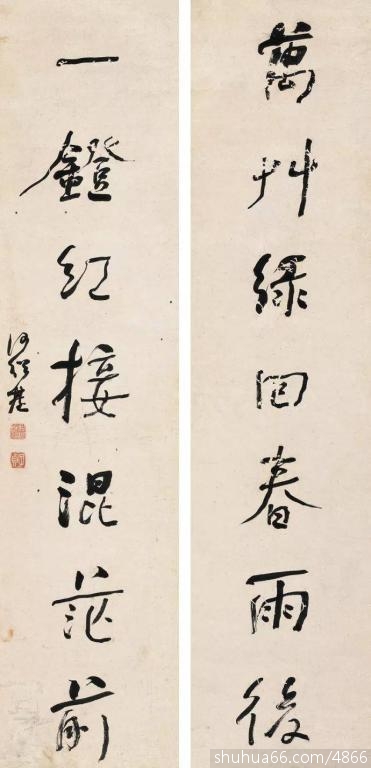 萬艸綠回春雨後
一鐙紅接混茫前
何紹基
shuhua66.com/4866